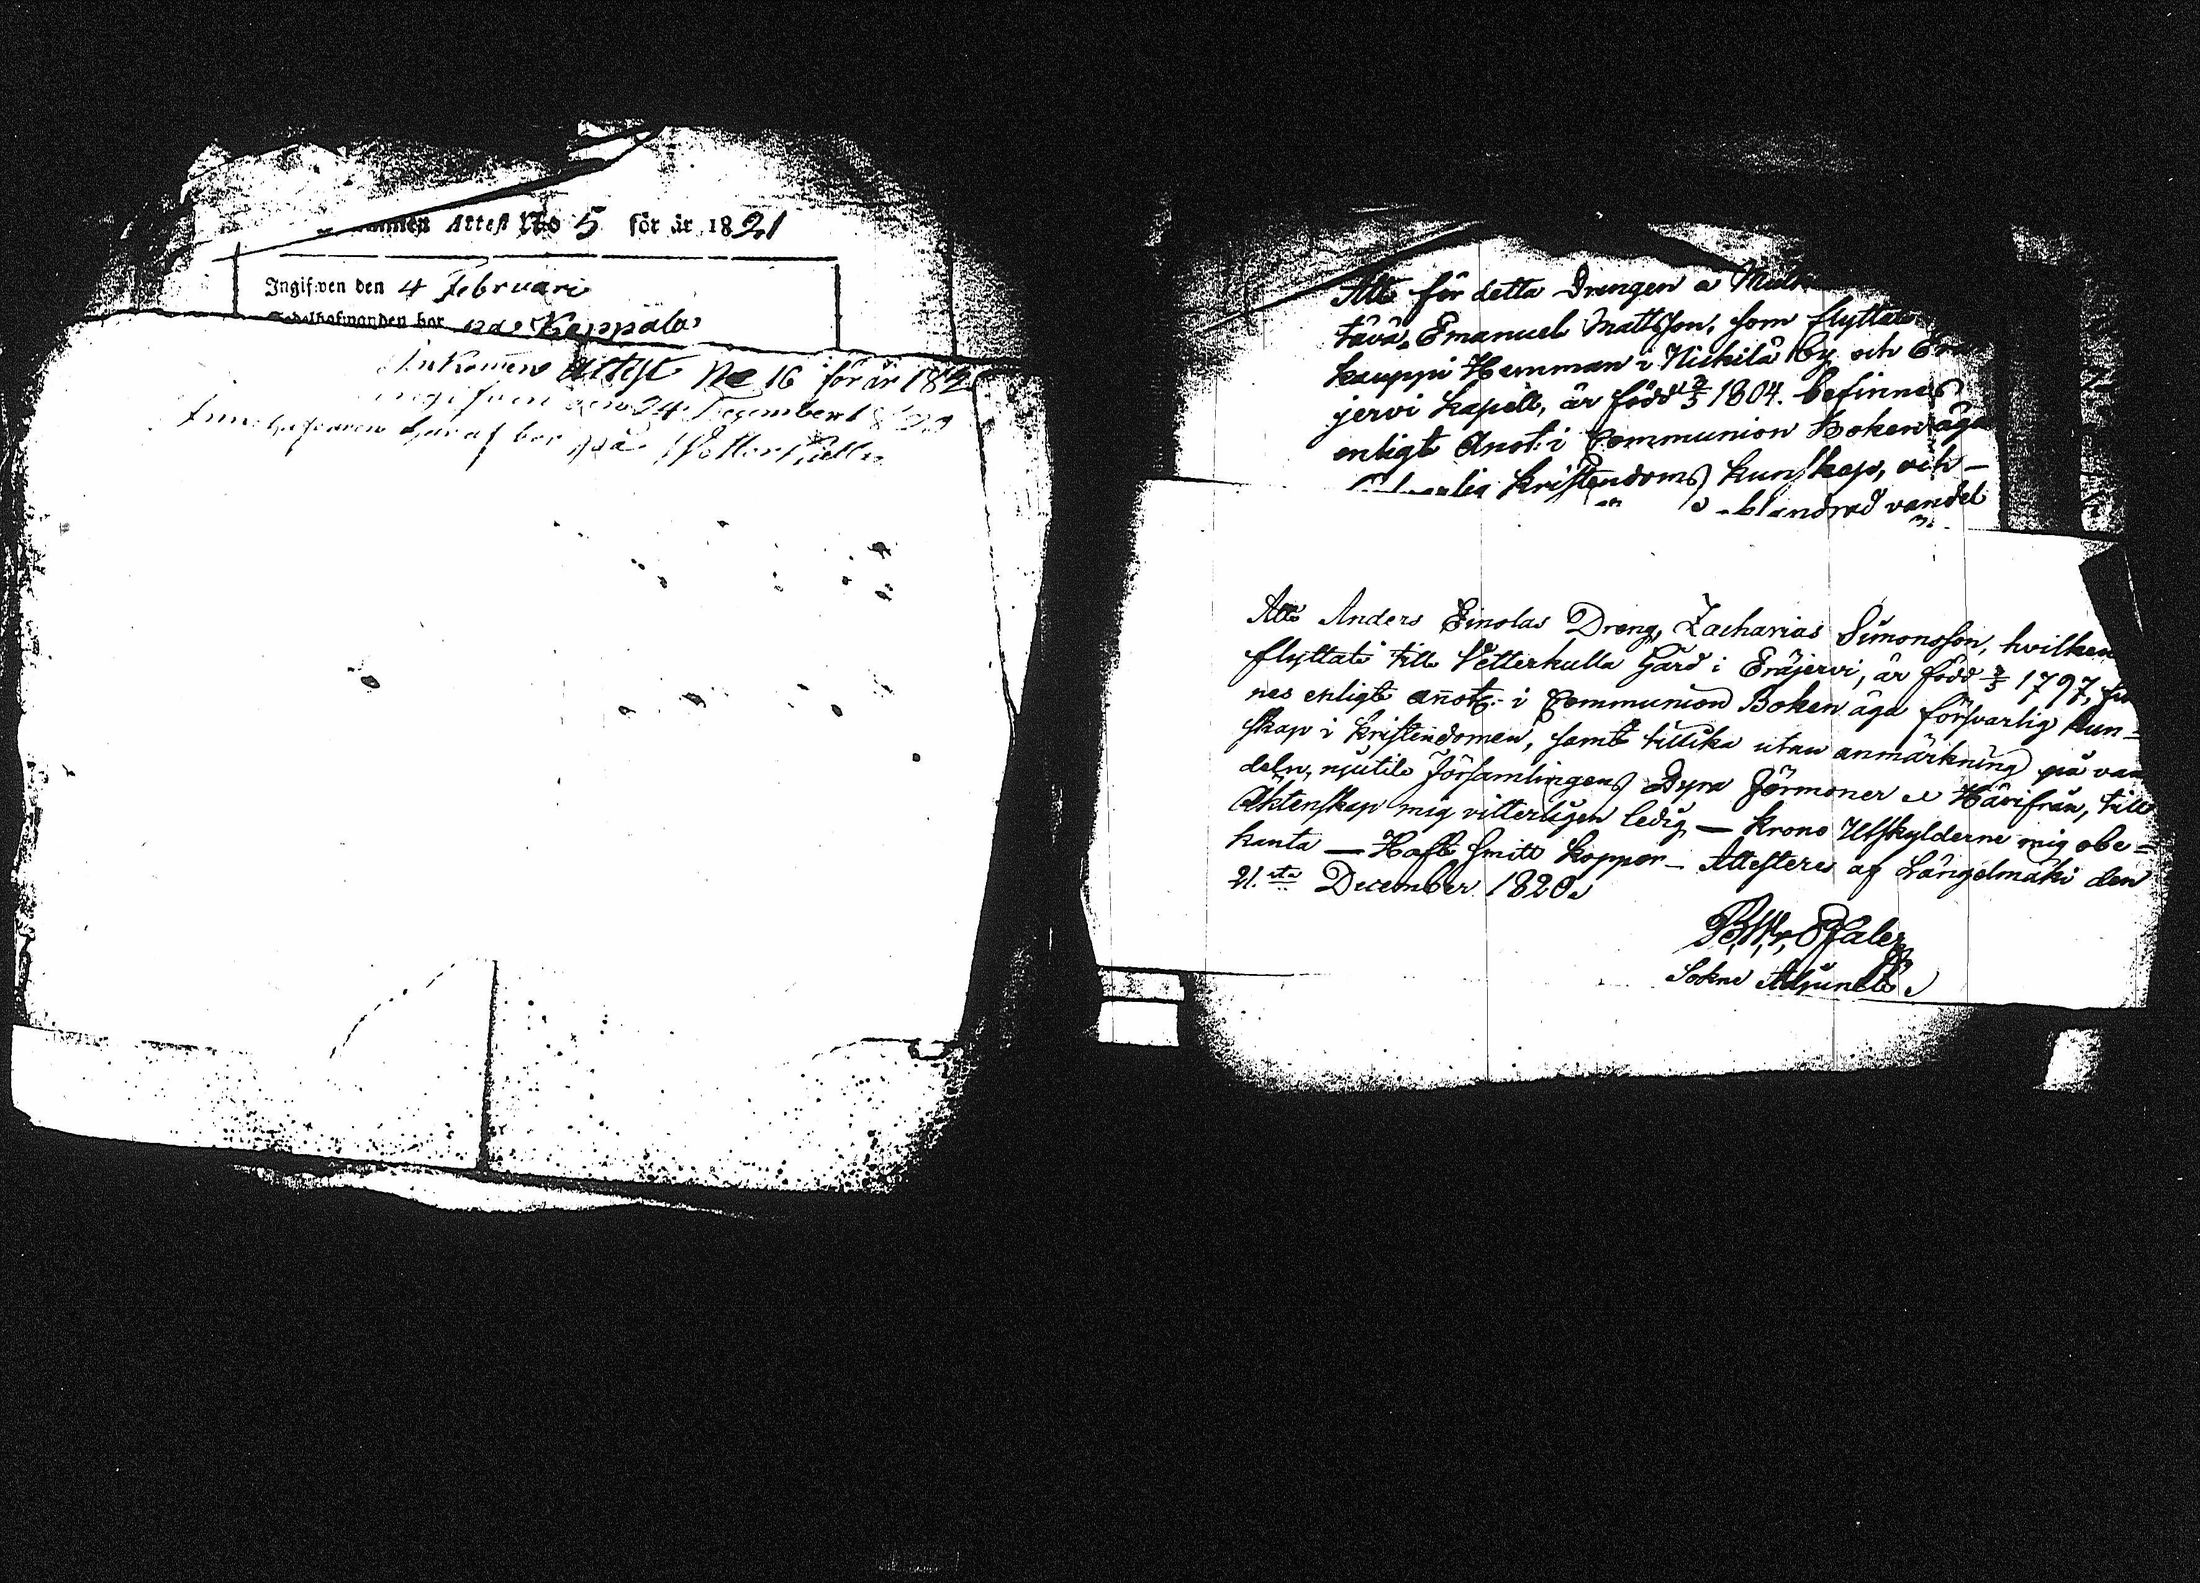 Attest No 5 för år 1821
Ingifven den 4 Februari
Sedelhafwanden bor på Kappala
Inkommen Attest No 16 för år 182
ingifven den 24 December 1820
Innehafvaren häraf bor på Vetterkulla
Att för detta Drengen a
Emanuel Mattsson, som flyttat
kauppi Hemman i Nickilä by och
jervi Kapell, är född 3/3 1804. befinnes
enligt Anot: i Communion Boken äga
Kristendoms kunskap, och
oklandrad vandel
Att Anders Einolas Dreng, Zacharias Simonsson, hvilken
flyttat till Vetterkulla Gård i Eräjervi, är född 3/3 1797,
nes enligt annotn: i Communion Boken äga försvarlig kun=
skap i kristendomen, samt tillika utan anmärkning på van
deln, njutit Församlingens Dyra Förmoner Härifrån, till
Äktenskap mig vitterligen ledig — Krono Utskylderne mig obe=
kanta — Haft smitt koppor — Attesteras af Längelmäki den
21.sta December 1820.
Sokne Adjunct